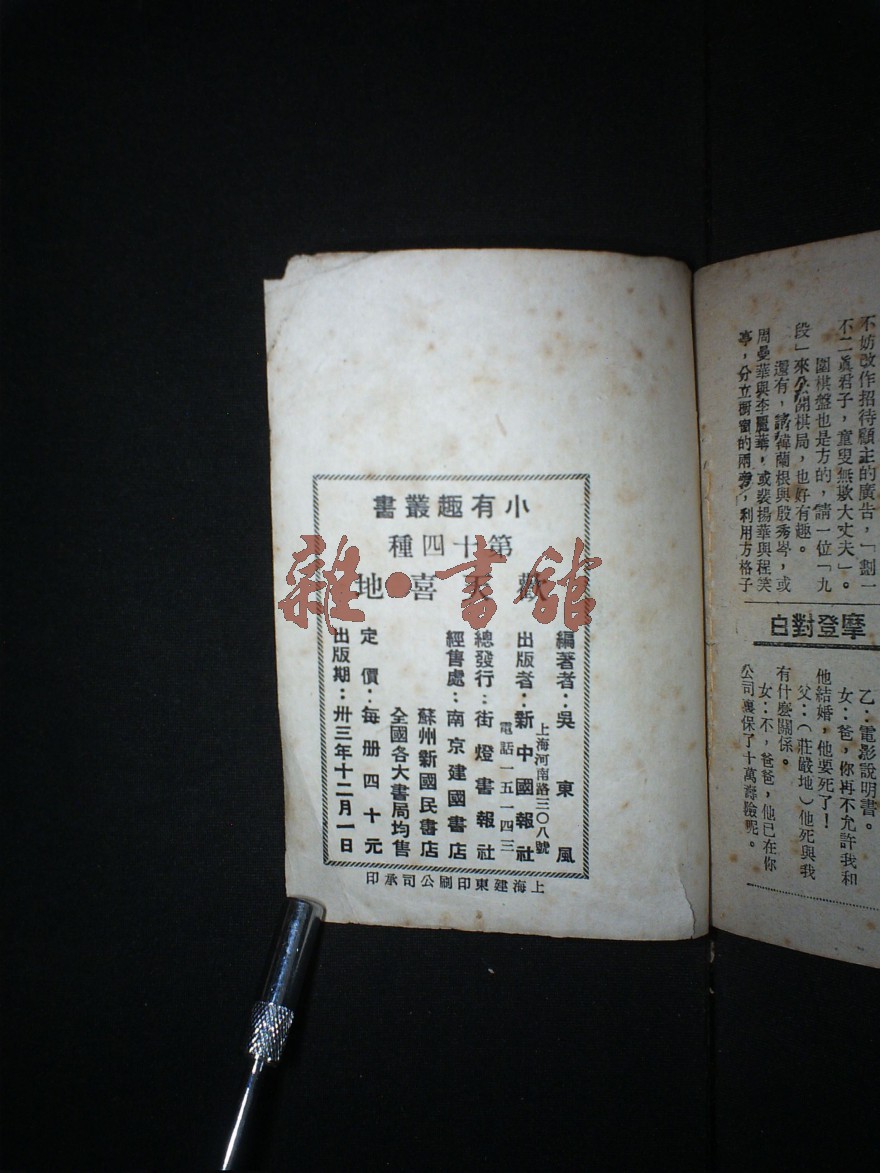 不妨改作招待顧主的廣告，「劃一
不二眞君子，童叟無欺大丈夫」。
圍棋盤也是方的，請一位「九
段」來公開棋局，也好有趣。
還有，請韓蘭根與殷秀岑，或
周曼華與李麗華，或裴揚華與程笑
亭，分立櫥窗的兩旁，利用方格子
摩登對白
乙：電影說明書。
女：爸，你再不允許我和
他結婚，他要死了！
父：（莊嚴地）他死與我
有什麼關係。
女：不，爸爸，他已在你
公司裏保了十萬壽險呢。
小有趣叢書
第十四種
歡天喜地
編著者：吳東風
上海河南路三〇八號
出版者：新中國報社
電話一五一四三
總發行：街燈書報社
經售處：南京建國書店
蘇州新國民書店
全國各大書局均售
定價：每册四十元
出版期：卅三年十二月一日
上海建東印刷公司承印
雜·書館